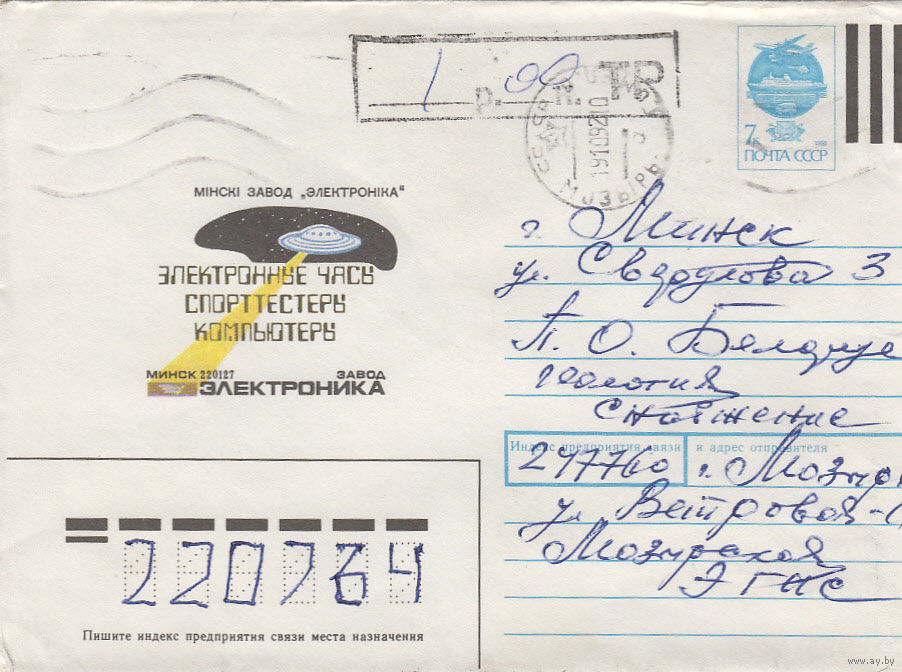 1 р. 00 к. ТР
СССР 191092 10
МОЗЫРЬ
7к
1988
ПОЧТА СССР
МІНСКІ ЗАВОД „ЭЛЕКТРОНІКА“
ЭЛЕКТРОННЫЕ ЧАСЫ
СПОРТТЕСТЕРЫ
КОМПЬЮТЕРЫ
МИНСК 220127 ЗАВОД
ЭЛЕКТРОНИКА
г. Минск
ул. Свердлова 3
П. О.
геология
снабжение
Индекс предприятия связи и адрес отправителя
247760 г. Мозырь
ул. Ветровая
Мозырская
ЭГИС
220764
Пишите индекс предприятия связи места назначения
www.ay.by